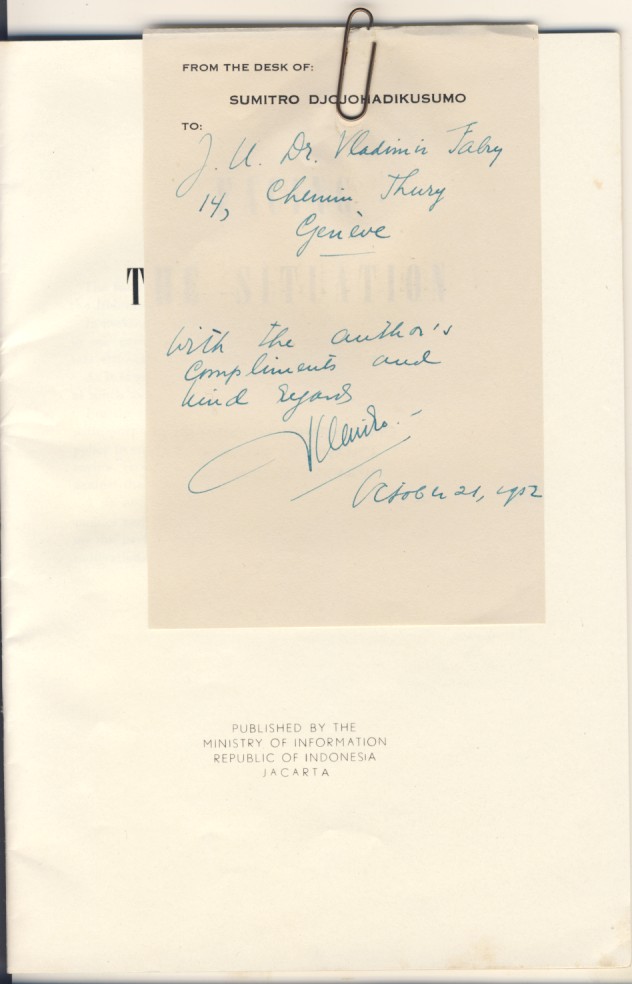 FROM THE DESK OF:
SUMITRO DJOJOHADIKUSUMO
TO:
J. U. Dr. Vladimir Fabry
14, Chemin Thury
Genève
THE SITUATION
With the author's
compliments and
kind regards
October 21, 1952
PUBLISHED BY THE
MINISTRY OF INFORMATION
REPUBLIC OF INDONESIA
JACARTA